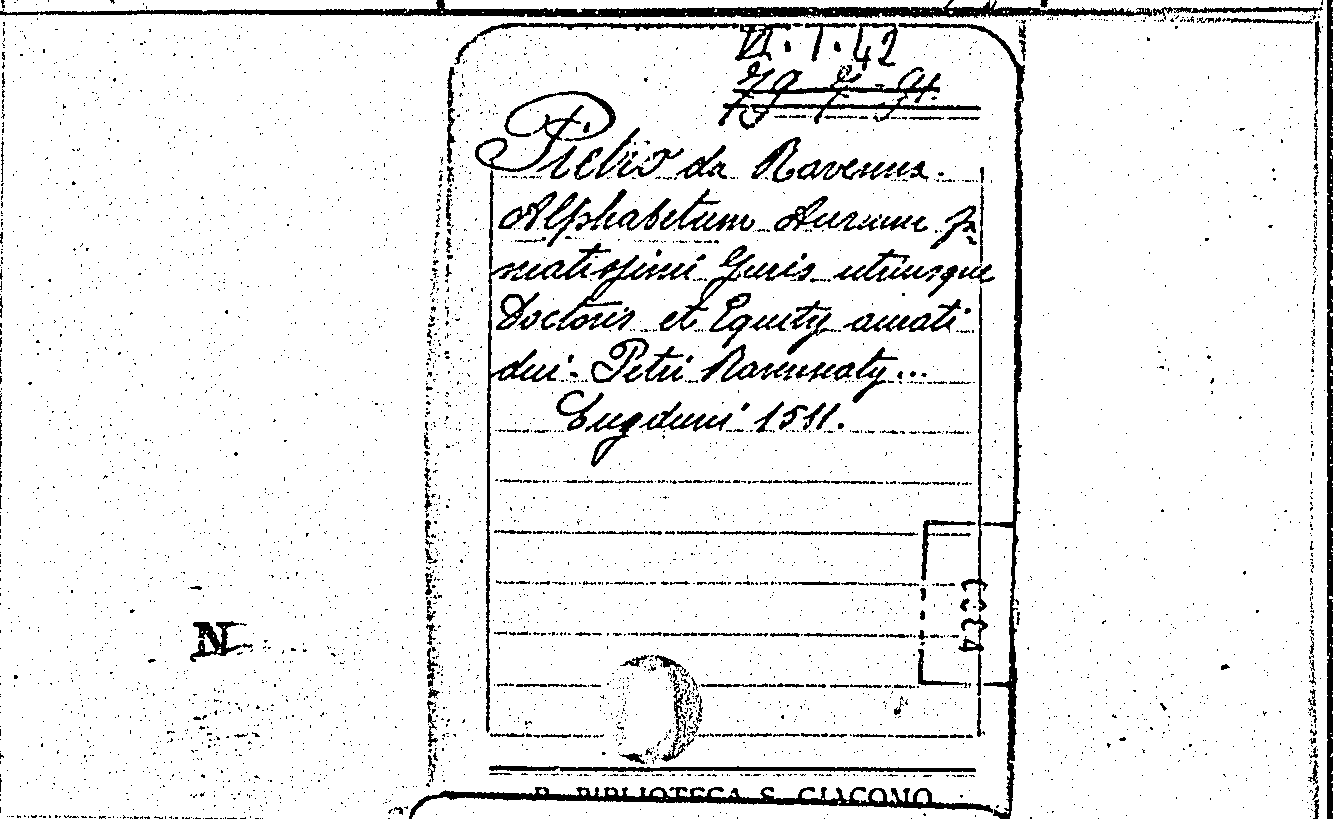 VI. 1. 42
79 7 - 91.
Pietro da Ravenna.
Alphabetum Aureum fa
matissimi Juris utriusque
Doctoris et Equity aurati
dni. Petri Ravennaty...
Lugduni 1511.
N
R. BIBLIOTECA S. GIACOMO